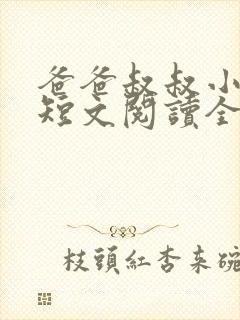 爸爸叔叔小
短文閱讀全
枝頭紅杏来碗